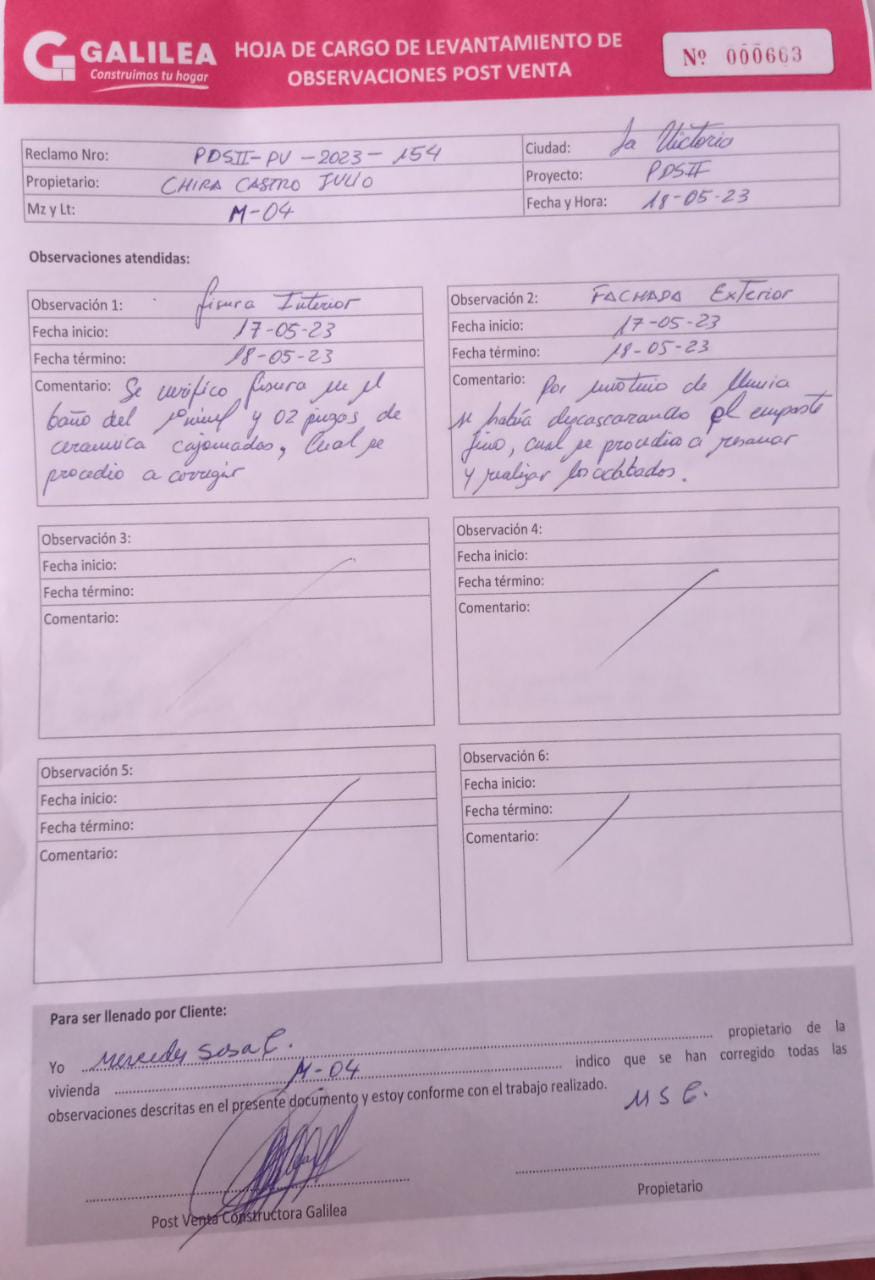 GALILEA
Construimos tu hogar
HOJA DE CARGO DE LEVANTAMIENTO DE
OBSERVACIONES POST VENTA
Nº 000663
Reclamo Nro: PDSII-PV-2023-154
Ciudad: La Victoria
Propietario: CHIRA CASTRO JULIO
Proyecto: PDSII
Mz y Lt: M-04
Fecha y Hora: 18-05-23
Observaciones atendidas:
Observación 1: fisura Interior
Fecha inicio: 17-05-23
Fecha término: 18-05-23
Comentario: Se verifico fisura en el
baño del 1º nivel y 02 piezas de
ceramica cajoneadas, Cual se
procedio a corregir
Observación 2: FACHADA Exterior
Fecha inicio: 17-05-23
Fecha término: 18-05-23
Comentario: Por motivo de lluvia
se había descascarando el empaste
fino, cual se procedio a resanar
y realizar los acabados.
Observación 3:
Fecha inicio:
Fecha término:
Comentario:
Observación 4:
Fecha inicio:
Fecha término:
Comentario:
Observación 5:
Fecha inicio:
Fecha término:
Comentario:
Observación 6:
Fecha inicio:
Fecha término:
Comentario:
Para ser llenado por Cliente:
Yo Mercedes Sosa C. propietario de la
vivienda M-04 indico que se han corregido todas las
observaciones descritas en el presente documento y estoy conforme con el trabajo realizado.
M S C.
Post Venta Constructora Galilea
Propietario